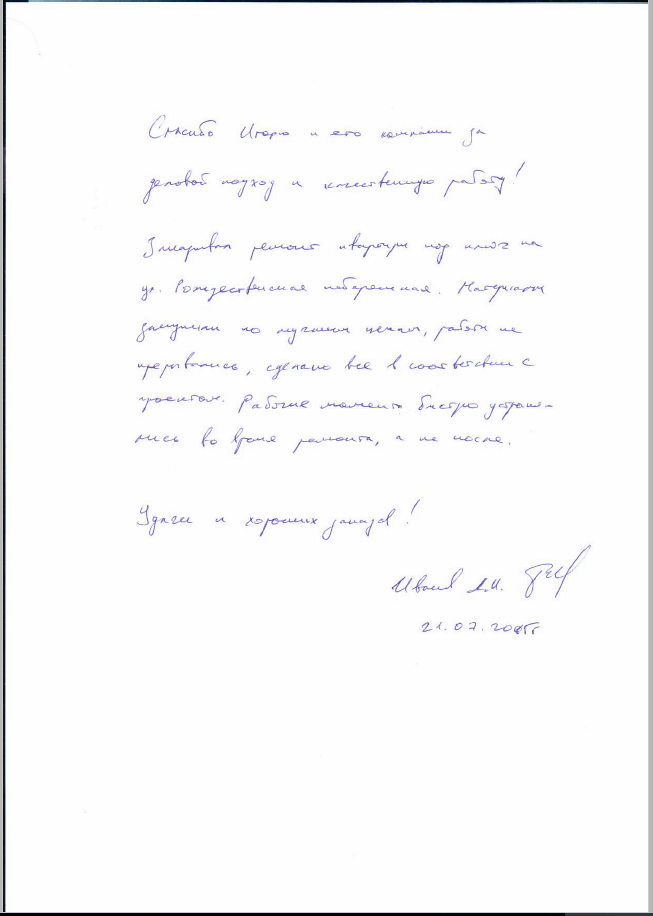 Спасибо Игорю и его компании за
деловой подход и качественную работу!
Заказывал ремонт квартиры под ключ на
ул. Рождественская набережная. Материалы
закупили по лучшим ценам, работы не
прерывались, сделано все в соответствии с
проектом. Рабочие моменты быстро устраня-
лись во время ремонта, а не после.
Удачи и хороших заказов!
Иванов А.И.
21.07.2015г